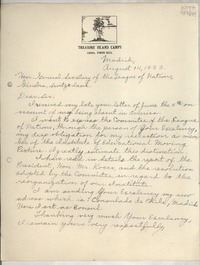 TREASURE ISLAND CAMPS
Madrid,
August 14, 1933.
Hon. General Secretary of the League of Nations
Geneva, Switzerland.
Dear Sir:
I received very late your letter of June the
account of my being absent in America.
I want to express the Committee of the League
of Nations, through the person of Your Excellency,
my deep obligation for my nomination as mem-
ber of the Institute of Educational Moving
Picture. I greatly estimate this distinction.
I had read in details the report of the
President, Hon. Mr. Rocco, and the resolution
adopted by the Committee in regard to the
reorganization of our Institute.
I am sending Your Excellency my new
address which is: Consulado de Chile, Madrid
Thanking very much Your Excellency,
I remain yours very respectfully,